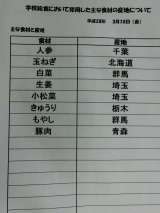 学校給食において使用した主な食材の産地について
平成28年 3月18日（金）
主な食材と産地
食材 産地
人参 千葉
玉ねぎ 北海道
白菜 群馬
生姜 埼玉
小松菜 埼玉
きゅうり 栃木
もやし 群馬
豚肉 青森